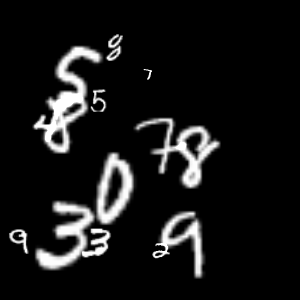 8
5 7
5
8
7 8
0
9 3 3 2 9